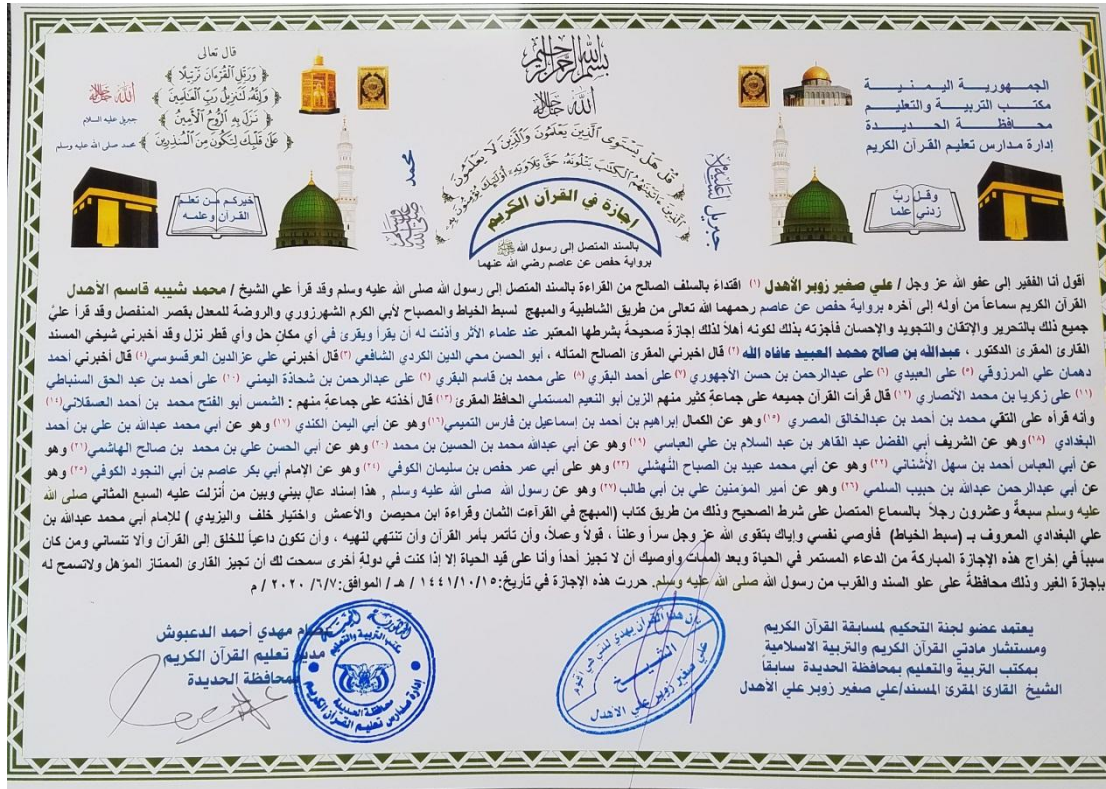 بسم الله الرحمن الرحيم
الله جل جلاله
الجمهورية اليمنية
مكتب التربية والتعليم
محافظة الحديدة
إدارة مدارس تعليم القرآن الكريم
قال تعالى
﴿ وَرَتِّلِ ٱلْقُرْءَانَ تَرْتِيلًا ﴾
﴿ وَإِنَّهُۥ لَتَنزِيلُ رَبِّ ٱلْعَٰلَمِينَ ﴾ الله جل جلاله
﴿ نَزَلَ بِهِ ٱلرُّوحُ ٱلْأَمِينُ ﴾ جبريل عليه السلام
﴿ عَلَىٰ قَلْبِكَ لِتَكُونَ مِنَ ٱلْمُنذِرِينَ ﴾ محمد صلى الله عليه وسلم
قُلْ هَلْ يَسْتَوِى ٱلَّذِينَ يَعْلَمُونَ وَٱلَّذِينَ لَا يَعْلَمُونَ
ٱلَّذِينَ ءَاتَيْنَٰهُمُ ٱلْكِتَٰبَ يَتْلُونَهُۥ حَقَّ تِلَاوَتِهِۦٓ أُو۟لَٰٓئِكَ يُؤْمِنُونَ بِهِۦ
جبريل عليه السلام
محمد صلى الله عليه وسلم
وقل ربِّ
زدني علما
خيركم من تعلم
القرآن وعلمه
إجازة في القرآن الكريم
بالسند المتصل إلى رسول الله ﷺ
برواية حفص عن عاصم رضي الله عنهما
أقول أنا الفقير إلى عفو الله عز وجل / علي صغير زوبر الأهدل (١) اقتداءً بالسلف الصالح من القراءة بالسند المتصل إلى رسول الله صلى الله عليه وسلم وقد قرأ علي الشيخ / محمد شيبه قاسم الأهدل
القرآن الكريم سماعاً من أوله إلى آخره برواية حفص عن عاصم رحمهما الله تعالى من طريق الشاطبية والمبهج لسبط الخياط والمصباح لأبي الكرم الشهرزوري والروضة للمعدل بقصر المنفصل وقد قرأ عليّ
جميع ذلك بالتحرير والإتقان والتجويد والإحسان فأجزته بذلك لكونه أهلاً لذلك إجازةً صحيحةً بشرطها المعتبر عند علماء الأثر وأذنت له أن يقرأ ويقرئ في أي مكانٍ حل وأي قطر نزل وقد أخبرني شيخي المسند
القارئ المقرئ الدكتور ، عبدالله بن صالح محمد العبيد عافاه الله (٢) قال اخبرني المقرئ الصالح المتاله ، أبو الحسن محي الدين الكردي الشافعي (٣) قال أخبرني علي عزالدين العرقسوسي(٤) قال أخبرني أحمد
دهمان علي المرزوقي (٥) على العبيدي (٦) على عبدالرحمن بن حسن الأجهوري (٧) على أحمد البقري (٨) على محمد بن قاسم البقري (٩) على عبدالرحمن بن شحاذة اليمني (١٠) على أحمد بن عبد الحق السنباطي
(١١) على زكريا بن محمد الأنصاري (١٢) قال قرأت القرآن جميعه على جماعةٍ كثير منهم الزين أبو النعيم المستملي الحافظ المقرئ (١٣) قال أخذته على جماعةٍ منهم : الشمس أبو الفتح محمد بن أحمد العسقلاني(١٤)
وأنه قرأه على التقي محمد بن أحمد بن عبدالخالق المصري (١٥) وهو عن الكمال إبراهيم بن أحمد بن إسماعيل بن فارس التميمي(١٦) وهو عن أبي اليمن الكندي (١٧) وهو عن أبي محمد عبدالله بن علي بن أحمد
البغدادي (١٨) وهو عن الشريف أبي الفضل عبد القاهر بن عبد السلام بن علي العباسي (١٩) وهو عن أبي عبدالله محمد بن الحسين بن محمد (٢٠) وهو عن أبي الحسن علي بن محمد بن صالح الهاشمي(٢١) وهو
عن أبي العباس أحمد بن سهل الأشناني (٢٢) وهو عن أبي محمد عبيد بن الصباح النهشلي (٢٣) وهو على أبي عمر حفص بن سليمان الكوفي (٢٤) وهو عن الإمام أبي بكر عاصم بن أبي النجود الكوفي (٢٥) وهو
عن أبي عبدالرحمن عبدالله بن حبيب السلمي (٢٦) وهو عن أمير المؤمنين علي بن أبي طالب (٢٧) وهو عن رسول الله صلى الله عليه وسلم , هذا إسناد عالٍ بيني وبين من أنزلت عليه السبع المثاني صلى الله
عليه وسلم سبعةٌ وعشرون رجلاً بالسماع المتصل على شرط الصحيح وذلك من طريق كتاب (المبهج في القراءت الثمان وقراءة ابن محيصن والأعمش واختيار خلف واليزيدي ) للإمام أبي محمد عبدالله بن
علي البغدادي المعروف بـ (سبط الخياط) فأوصي نفسي وإياك بتقوى الله عز وجل سراً وعلناً ، قولاً وعملاً، وأن تأتمر بأمر القرآن وأن تنتهي لنهيه ، وأن تكون داعياً للخلق إلى القرآن وألا تنساني ومن كان
سبباً في إخراج هذه الإجازة المباركة من الدعاء المستمر في الحياة وبعد الممات وأوصيك أن لا تجيز أحداً وأنا على قيد الحياة إلا إذا كنت في دولةٍ أخرى سمحت لك أن تجيز القارئ الممتاز المؤهل ولاتسمح له
بإجازة الغير وذلك محافظةً على علو السند والقرب من رسول الله صلى الله عليه وسلم. حررت هذه الإجازة في تأريخ:١٤٤١/١٠/١٥ / هـ / الموافق:٢٠٢٠ /٦/٧ / م
يعتمد عضو لجنة التحكيم لمسابقة القرآن الكريم
ومستشار مادتي القرآن الكريم والتربية الاسلامية
بمكتب التربية والتعليم بمحافظة الحديدة سابقاً
الشيخ القارئ المقرئ المسند/علي صغير زوبر علي الأهدل
إن هذا القرآن يهدي للتي هي أقوم
الشيخ
علي صغير زوبر علي الأهدل
عصام مهدي أحمد الدعبوش
مدير تعليم القرآن الكريم
بمحافظة الحديدة
الجمهورية اليمنية
مكتب التربية والتعليم
محافظة الحديدة
إدارة مدارس تعليم القرآن الكريم